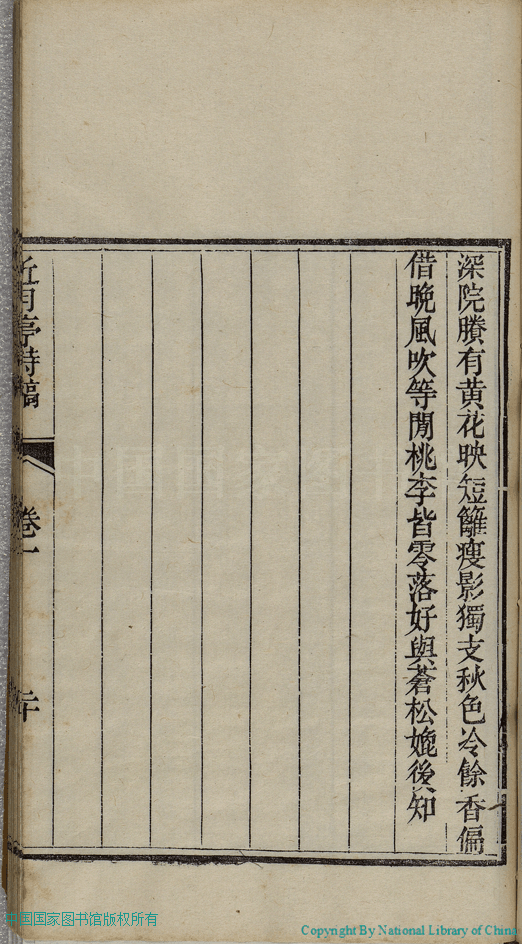 深院賸有黄花映短籬瘦影獨支秋色冷餘香偏
借晚風吹等閒桃李皆零落好與蒼松媲後知
近月亭詩稿
卷一
二十
中国国家图书馆
中国国家图书馆版权所有
Copyright By National Library of China